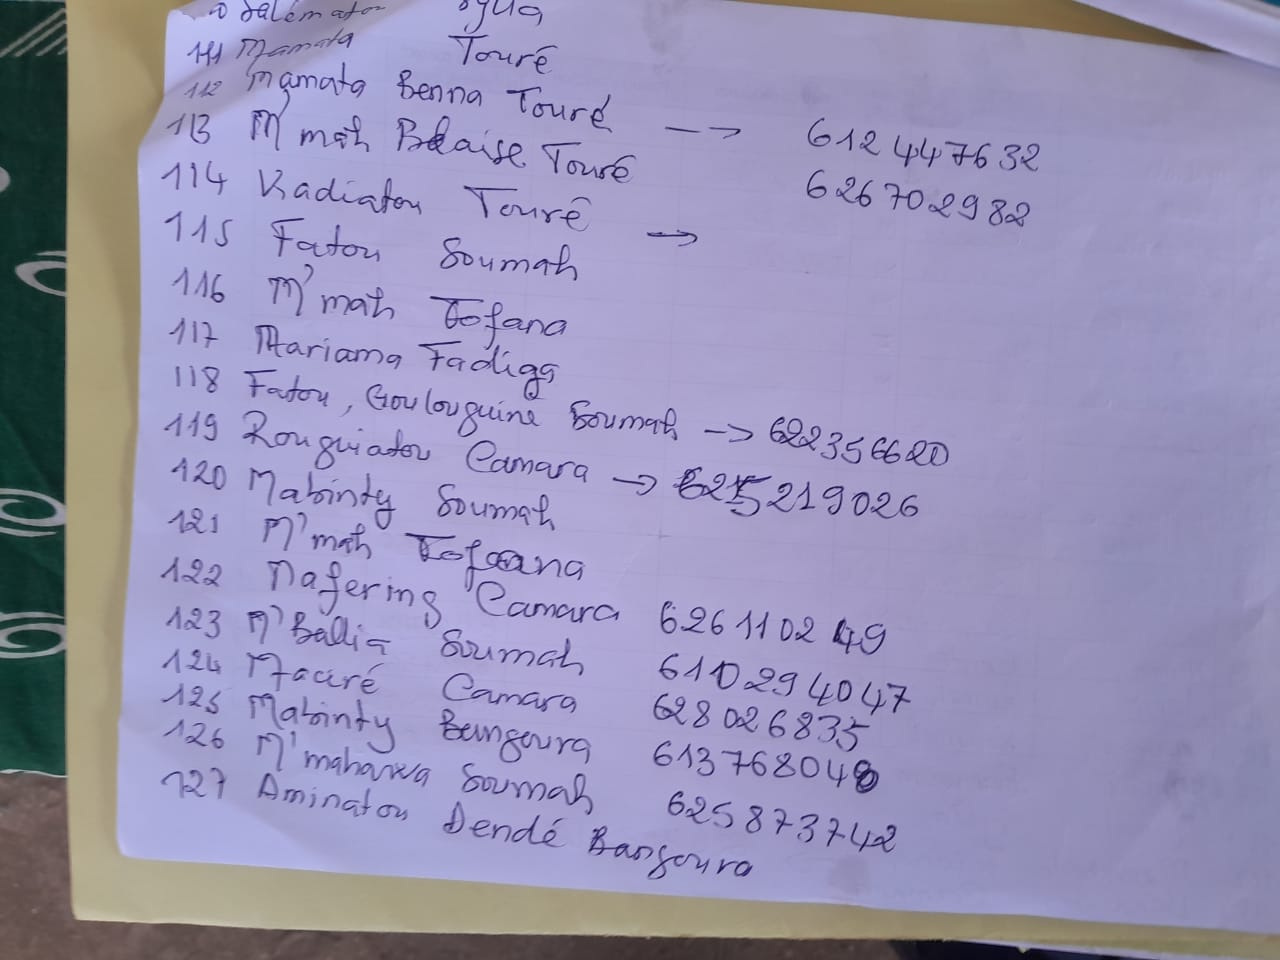 Salématou
111 Mamata Touré
112 Mamata Benna Touré --> 612447632
113 M'mah Blaise Touré 626702982
114 Kadiatou Touré ->
115 Fatou Soumah
116 M'mah Fofana
117 Mariama Fadiga
118 Fatou, Goulouguine Soumah -> 622356620
119 Rouguiatou Camara -> 625219026
120 Mabinty Soumah
121 M'mah Fofana
122 Nafering Camara 626110249
123 M'Ballia Soumah 610294047
124 Maciré Camara 628026835
125 Mabinty Bangoura 613768048
126 M'mahawa Soumah 625873742
127 Aminatou Dendé Bangoura